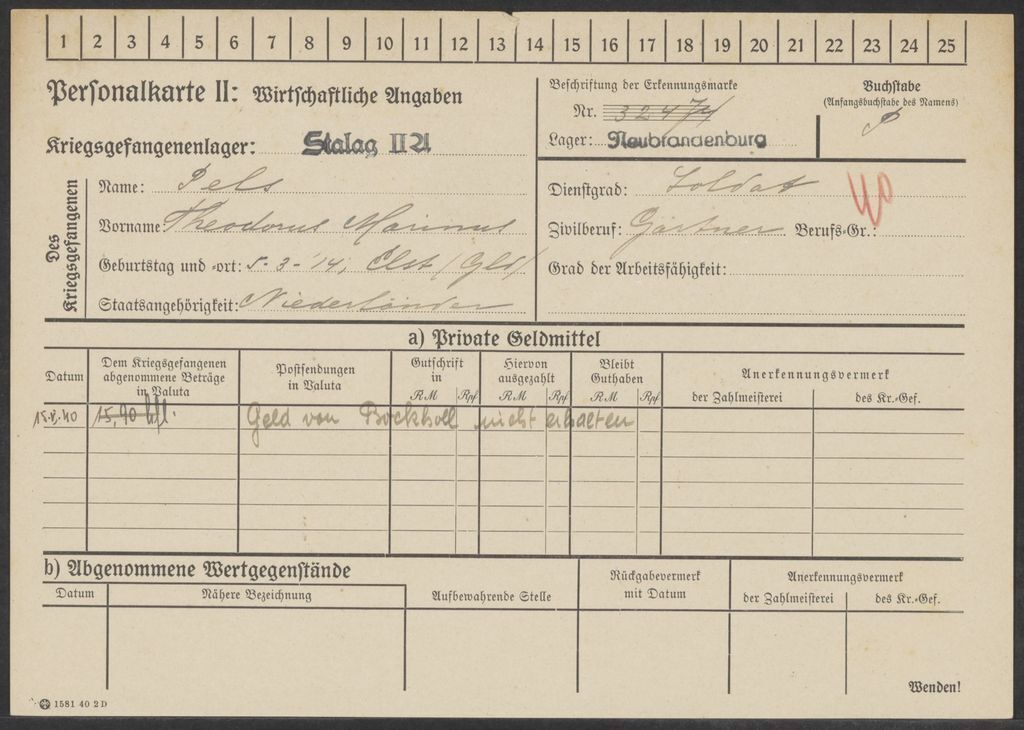 1 2 3 4 5 6 7 8 9 10 11 12 13 14 15 16 17 18 19 20 21 22 23 24 25
Personalkarte II: Wirtschaftliche Angaben
Kriegsgefangenenlager: Stalag II A
Beschriftung der Erkennungsmarke
Nr. 32474
Lager: Neubrandenburg
Buchstabe
(Anfangsbuchstabe des Namens)
P
Des Kriegsgefangenen
Name: Pels
Vorname Theodorus Marinus
Geburtstag und -ort: 5-3-'14, Elst (Gld)
Staatsangehörigkeit: Niederländer
Dienstgrad: Soldat
Zivilberuf: Gärtner Berufs-Gr.:
Grad der Arbeitsfähigkeit:
a) Private Geldmittel
Datum
Dem Kriegsgefangenen
abgenommene Beträge
in Valuta
Postsendungen
in Valuta
Gutschrift
in
RM Rpf
Hiervon
ausgezahlt
RM Rpf
Bleibt
Guthaben
RM Rpf
Anerkennungsvermerk
der Zahlmeisterei des Kr.-Gef.
15.V.40 15,90 hfl. Geld von Bockholt nicht erhalten
b) Abgenommene Wertgegenstände
Datum
Nähere Bezeichnung
Aufbewahrende Stelle
Rückgabevermerk
mit Datum
Anerkennungsvermerk
der Zahlmeisterei des Kr.-Gef.
Wenden!
1581 40 2 D